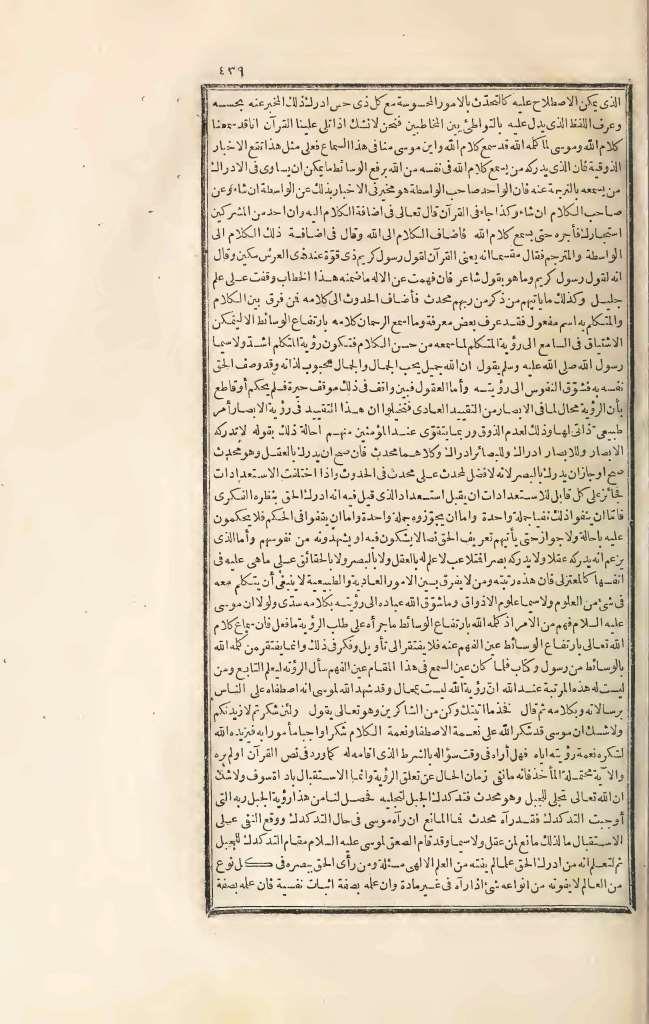 ٤٣٩
الذى يمكن الاصطلاح عليه كالتحدّث بالامور المحسوسة مع كل ذى حس ادرك ذلك المخبر عنه بحسه
وعرف اللفظ الذى يدل عليه بالتواطئ بين المخاطبين فنحن لا نشك اذا تلى علينا القرآن اناقد سمعنا
كلام الله وموسى لما كلمه الله قد سمع كلام الله واين موسى منا فى هذا السماع فعلى مثل هذا تقع الاخبار
الذوقية فان الذى يدركه من يسمع كلام الله فى نفسه من الله برفع الوسائط ما يمكن ان يساوى فى الادراك
من يسمعه بالترجمة عنه فان الواحد صاحب الواسطة هو مخير فى الاخبار بذلك عن الواسطة ان شاء وعن
صاحب الكلام ان شاء وكذا جاء فى القرآن قال تعالى فى اضافة الكلام اليه وان احد من المشركين
استجارك فأجره حتى يسمع كلام الله فاضاف الكلام الى الله وقال فى اضافة ذلك الكلام الى
الواسطة والمترجم فقال مقسما انه يعنى القرآن لقول رسول كريم ذى قوّة عند ذى العرش مكين وقال
انه لقول رسول كريم وما هو بقول شاعر فان فهمت عن الاله ما ضمنه هذا الخطاب وقفت على علم
جليل وكذلك ما يأتيهم من ذكر من ربهم محدث فأضاف الحدوث الى كلامه فمن فرق بين الكلام
والمتكلم به اسم مفعول فقد عرف بعض معرفة وما اسمع الرحمان كلامه بارتفاع الوسائط الا ليتمكن
الاشتياق فى السامع الى رؤية المتكلم لما سمعه من حسن الكلام فتكون رؤية المتكلم اشدّ ولاسيما
رسول الله صلى الله عليه وسلم يقول ان الله جميل يحب الجمال والجمال محبوب لذاته وقد وصف الحق
نفسه به فشوّق النفوس الى رؤيته وأما العقول فبين واقف فى ذلك موقف حيرة فلم يحكم أو قاطع
بأن الرؤية محال لما فى الابصار من التقييد العادى فتخيلوا ان هذا التقييد فى رؤية الابصار أمر
طبيعى ذاتى لها وذلك لعدم الذوق وربما يتقوّى عند المؤمنين منهم احالة ذلك بقوله لا تدركه
الابصار وللابصار ادراك وللبصائر ادراك وكلاهما محدث فان صح ان يدرك بالعقل وهو محدث
صح أو جاز ان يدرك بالبصر لانه لا فضل لمحدث على محدث فى الحدوث واذا اختلفت الاستعدادات
فجائز على كل قابل للاستعدادات ان يقبل استعداد الذى قيل فيه انه ادرك الحق بنظره الفكرى
فاما ان ينفوا ذلك نفيا جملة واحدة واما ان يجوّزوه جملة واحدة واما ان يقفوا فى الحكم فلا يحكمون
عليه باحالة ولا جواز حتى يأتيهم تعريف الحق نصا لا يشكون فيه او يشهدونه من نفوسهم وأما الذى
يزعم انه يدركه عقلا ولا يدركه بصرا فتلاعب لا علم له بالعقل ولا بالبصر ولا بالحقائق على ما هى عليه فى
انفسها كالمعتزلى فان هذه رتبته ومن لا يفرق بين الامور العادية والطبيعية لا ينبغى أن يتكلم معه
فى شئ من العلوم ولاسيما علوم الاذواق وما شوّق الله عباده الى رؤيته بكلامه سدى ولولا ان موسى
عليه السلام فهم من الامر اذ كلمه الله بارتفاع الوسائط ما جرأه على طلب الرؤية ما فعل فان سماع كلام
الله تعالى بارتفاع الوسائط عين الفهم عنه فلا يفتقر الى تأويل وفكر فى ذلك وانما يفتقر من كلمه الله
بالوسائط من رسول وكتاب فلما كان عين السمع فى هذا المقام عين الفهم سأل الرؤية ليعلم التابع ومن
ليست له هذه المرتبة عند الله انّ رؤية الله ليست بمحال وقد شهد الله لموسى انه اصطفاه على الناس
برسالاته وبكلامه ثم قال فخذ ما آتيتك وكن من الشاكرين وهو تعالى يقول ولئن شكرتم لازيدنكم
ولا شك ان موسى قد شكر الله على نعمة الاصطفاء ونعمة الكلام شكرا واجبا مأمورا به فيزيده الله
لشكره نعمة رؤيته اياه فهل رآه فى وقت سؤاله بالشرط الذى اقامه له كما ورد فى نص القرآن أو لم يره
والآية محتملة المأخذ فانه ما نفى زمان الحال عن تعلق الرؤية وانما الاستقبال باداة سوف ولا شك
ان الله تعالى تجلى للجبل وهو محدث فتدكدك الجبل لتجليه فحصل لنا من هذا رؤية الجبل ربه التى
أوجبت التدكدك فقد رآه محدث فما المانع ان رآه موسى فى حال التدكدك ووقع النفى على
الاستقبال ما لذلك مانع لمن عقل ولاسيما وقد قام الصعق لموسى عليه السلام مقام التدكدك للجبل
ثم لتعلم انه من ادرك الحق علما لم يفته من العلم الالهى مسئلة ومن رأى الحق ببصره فى كل نوع
من العالم لا يفوته من انواعه شئ اذا رآه فى غير مادة وان علمه بصفة اثبات نفسية فان علمه بصفة